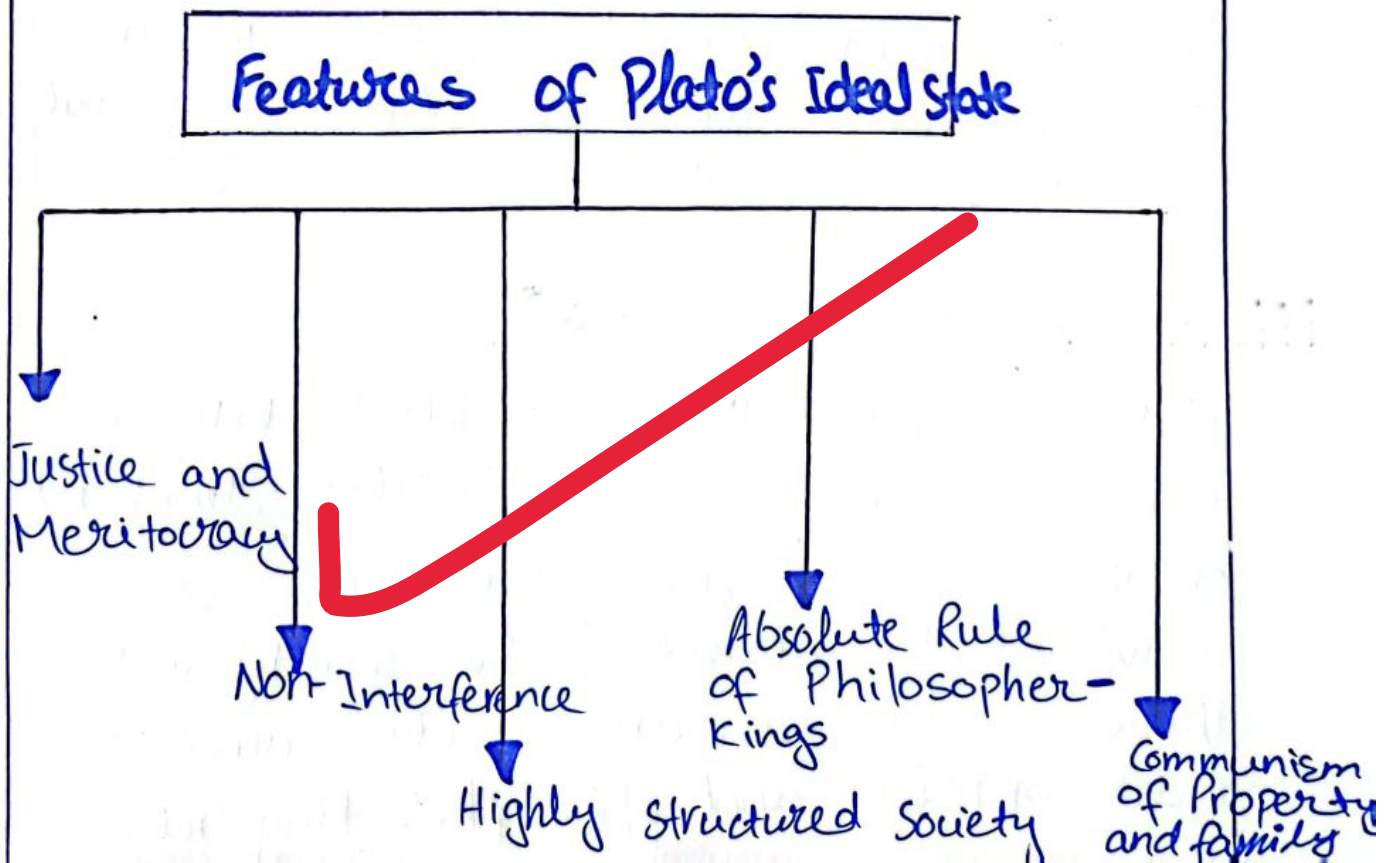 Features of Plato's Ideal state
Justice and
Meritocracy
Non-Interference
Highly Structured Society
Absolute Rule
of Philosopher-
Kings
Communism
of Property
and family